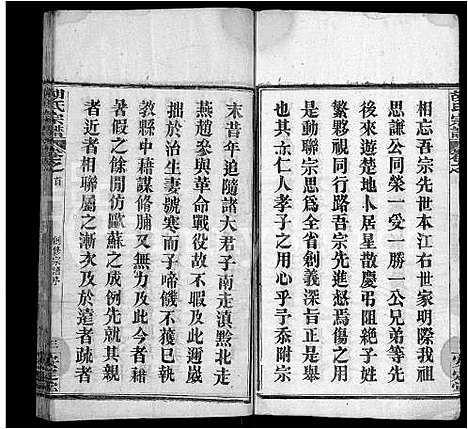 相忘吾宗先世本江右世家明際我共
思謙公同榮一受一勝一公兄弟等先
後來遊楚地卜居星散慶弔阻絶子姓
繁夥相視同行路吾宗先進惄焉傷之
是動聯宗思爲全省創義深旨正且舉
偉矣亦仁人孝子之用心乎予忝附宗
末昔年追隨諸大君子南走滇黔北走
燕趙叅與革命戰役戰不獲卸此迺嵗
拙於治生妻號寒而子啼饑不獲已執
教縣中藉謀脩脯又奚暇及此今者藉
暑假之餘閒仿歐蘇之成例先就其親
者近者相聯屬之漸次及於遠者疎者
胡氏宗譜
卷之首
創修宗譜序
三
安定堂